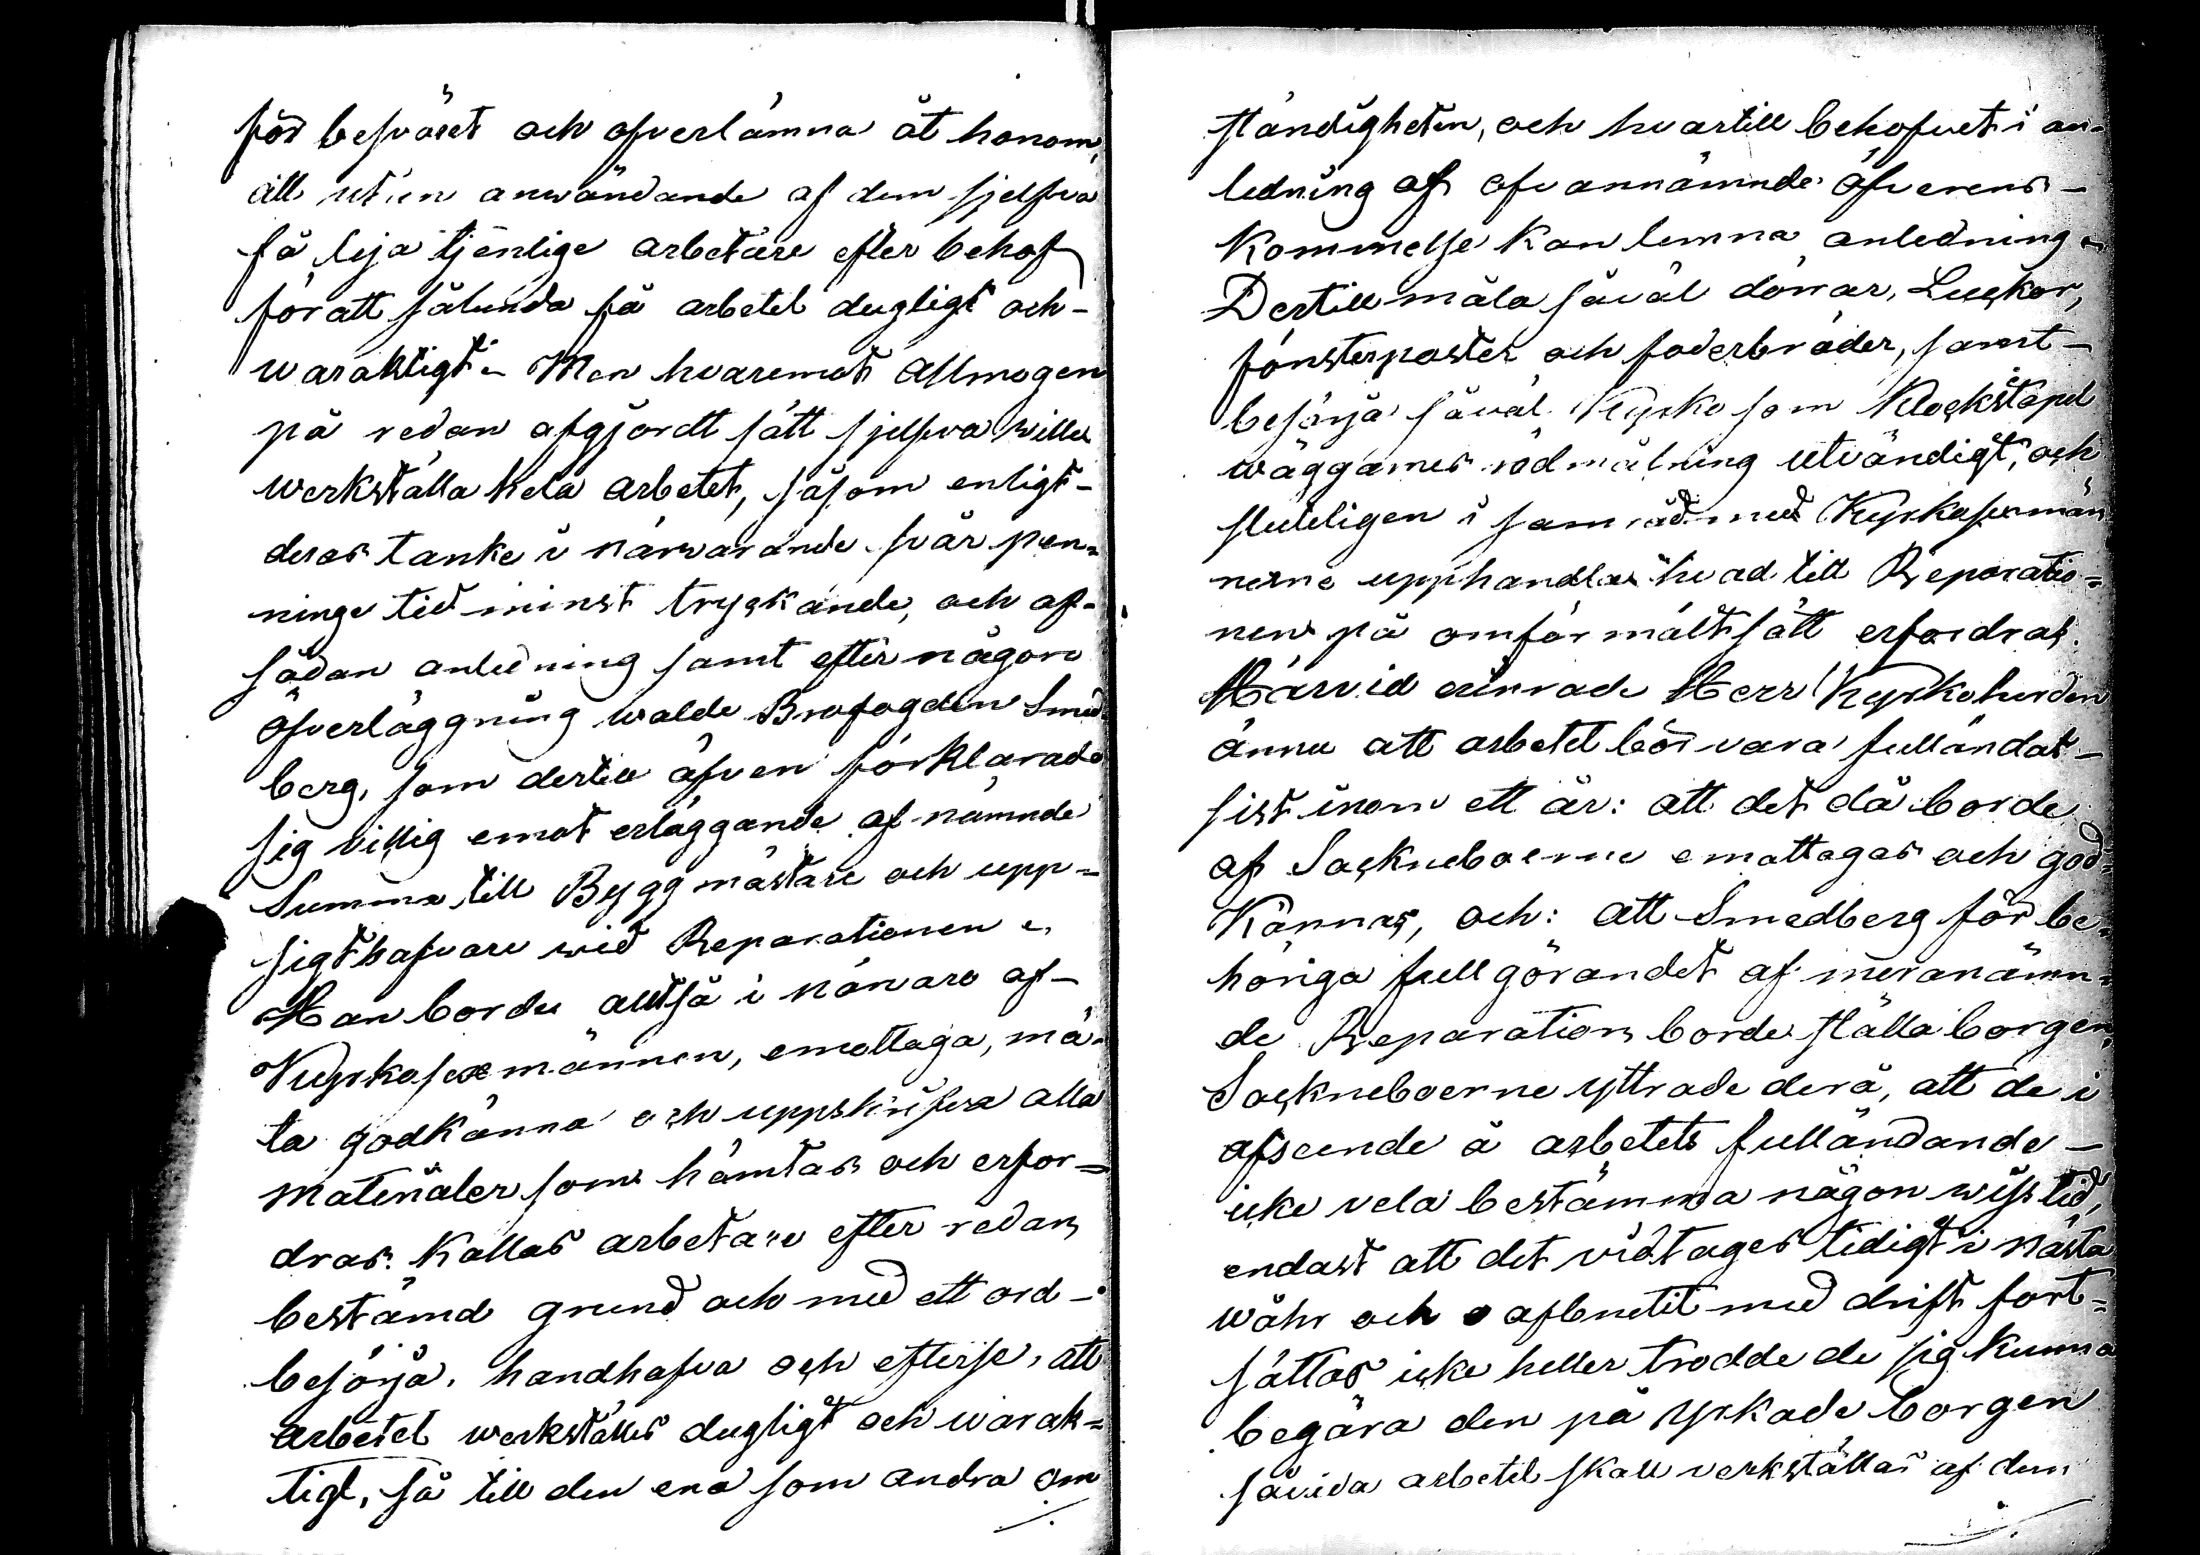 för besväret och öfverlämna åt honom,
att utien anwändande af dem sjelfva
få leja tjenlige arbetare efter behof
för att sålunda få arbetet dugligt och-
waraktigt.- Men hvaremot Allmogen
på redan afgjordt sätt sjelfva wille
werkställa hela arbetet, såsom enligt-
deras tanke i närwarande svår pen=
ninge tid minst tryckande, och af-
sådan anledning samt efter någon
öfverläggning walde Brofogden Smed=
berg, som dertill äfven förklarade
sig villig emot erläggande af nämnde
Summa, till Byggmästare och upp=
sigthafvare wid Reparationen.
Han borde alltså i närvaro af-
Kyrkosexmännen, emottaga, mä-
ta godkänna och uppskrifva alla
materialer som hämtas och erfor=
dras. Kallas arbetare efter redan
bestämd grund och med ett ord-
besörja, handhafva och efterse, att
arbetet werkställes dugligt och warak=
tigt, så till den ena som andra om
ständigheten, och hvartill behofvet i an=
ledning af ofvannämnde öfverens-
kommelse kan lemna anledning.
Dertill måla såväl dörrar, Luckor,
fönsterposter och foderbräder, samt-
besörja såväl Kyrko som Klockstapel
wäggarnes rödmålning utvändigt, och
sluteligen i samråd med Kyrkosexmän
nerne upphandla hvad till Reparatio=
nen på omförmält sätt erfordras.
Härvid erinrade Herr Kyrkoherden
ännu att arbetet bör vara fulländat-
sist inom ett år: att det då borde
af Sockneboerne emottagas och god=
kännas, och: att Smedberg för be=
höriga fullgörandet af meranämn=
de Reparation borde ställa borgen,
Sockneboerne yttrade derå, att de i
afseende å arbetets fulländande-
icke vela bestämma någon wiss tid,
endast att det vidtages tidigt i nästa
währ och oafbrutit med drift fort=
sättas icke heller trodde de sig kunna
begära den på yrkade borgen
såvida arbetet skall verkställas af dem